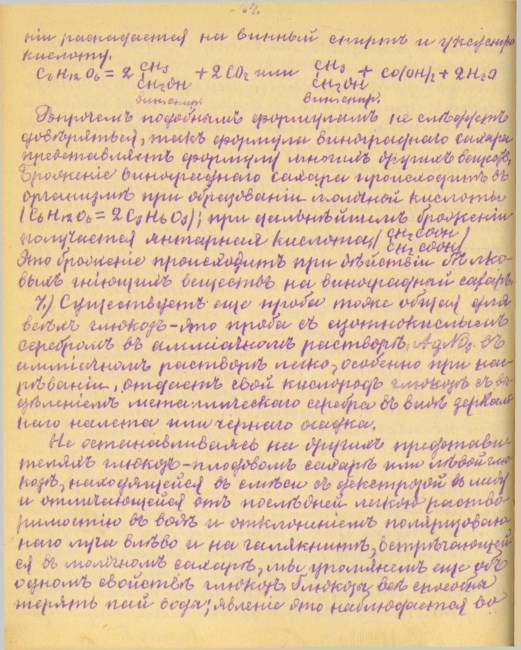 - 54. -
ніи распадается на винный спиртъ и углекислую
кислоту.
C6H12O6 = 2 CH3 + 2CO2 или CH3 + CO(OH)2 + 2H2O
CH2OH CH2OH
вин. спир. вин. спир.
Впрочемъ подобнымъ формуламъ не слѣдуетъ
довѣряться, такъ формула винограднаго сахара
представляетъ формулу многихъ другихъ веществъ.
Броженіе винограднаго сахара происходитъ въ
организмѣ при образованіи молочной кислоты
(C6H12O6 = 2C3H6O3); при дальнѣйшемъ броженіи
получается янтарная кислота (CH2COOH
CH2COOH)
Это броженіе происходитъ при дѣйствіи бѣлко-
выхъ гніющихъ веществъ на виноградный сахаръ.
7) Существуетъ еще проба тоже общая для
всѣхъ глюкозъ - это проба съ азотнокислымъ
серебромъ въ амміачномъ растворѣ. AgNO3 въ
амміачномъ растворѣ легко, особенно при наг-
рѣваніи, отдаетъ свой кислородъ глюкозѣ съ вы-
дѣленіемъ металлическаго серебра въ видѣ зеркаль-
наго налета или чернаго осадка.
Не останавливаясь на другихъ представи-
теляхъ глюкозъ - плодовомъ сахарѣ или лѣвой глю-
козѣ, находящейся въ смѣси съ декстрозой въ меду
и отличающейся отъ послѣдней легкою раство-
римостію въ водѣ и отклоненіемъ поляризован-
наго луча влѣво и на галактитѣ, встрѣчающей-
ся въ молочномъ сахарѣ, мы упомянемъ еще объ
одномъ свойствѣ глюкозъ. Глюкозы всѣ способны
терять пай воды; явленіе это наблюдается во